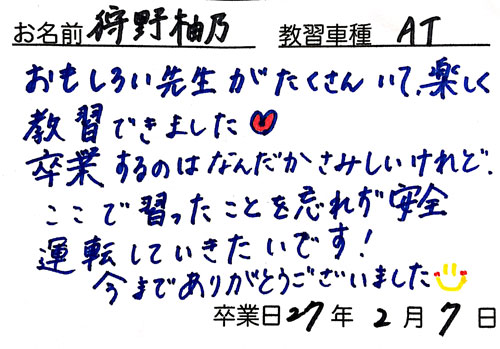 お名前 狩野柚乃 教習車種 AT
おもしろい先生がたくさんいて、楽しく
教習できました
卒業するのはなんだかさみしいけれど、
ここで習ったことを忘れず安全
運転していきたいです!
今までありがとうございました
卒業日27年2月7日